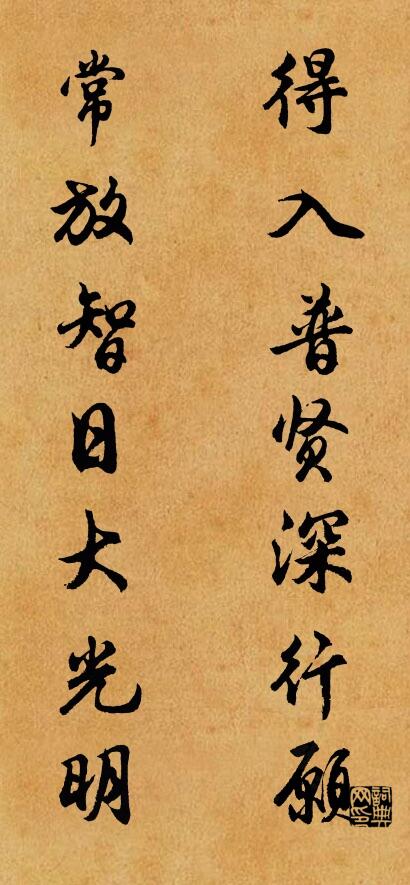 得入普贤深行願
常放智日大光明
詞典网